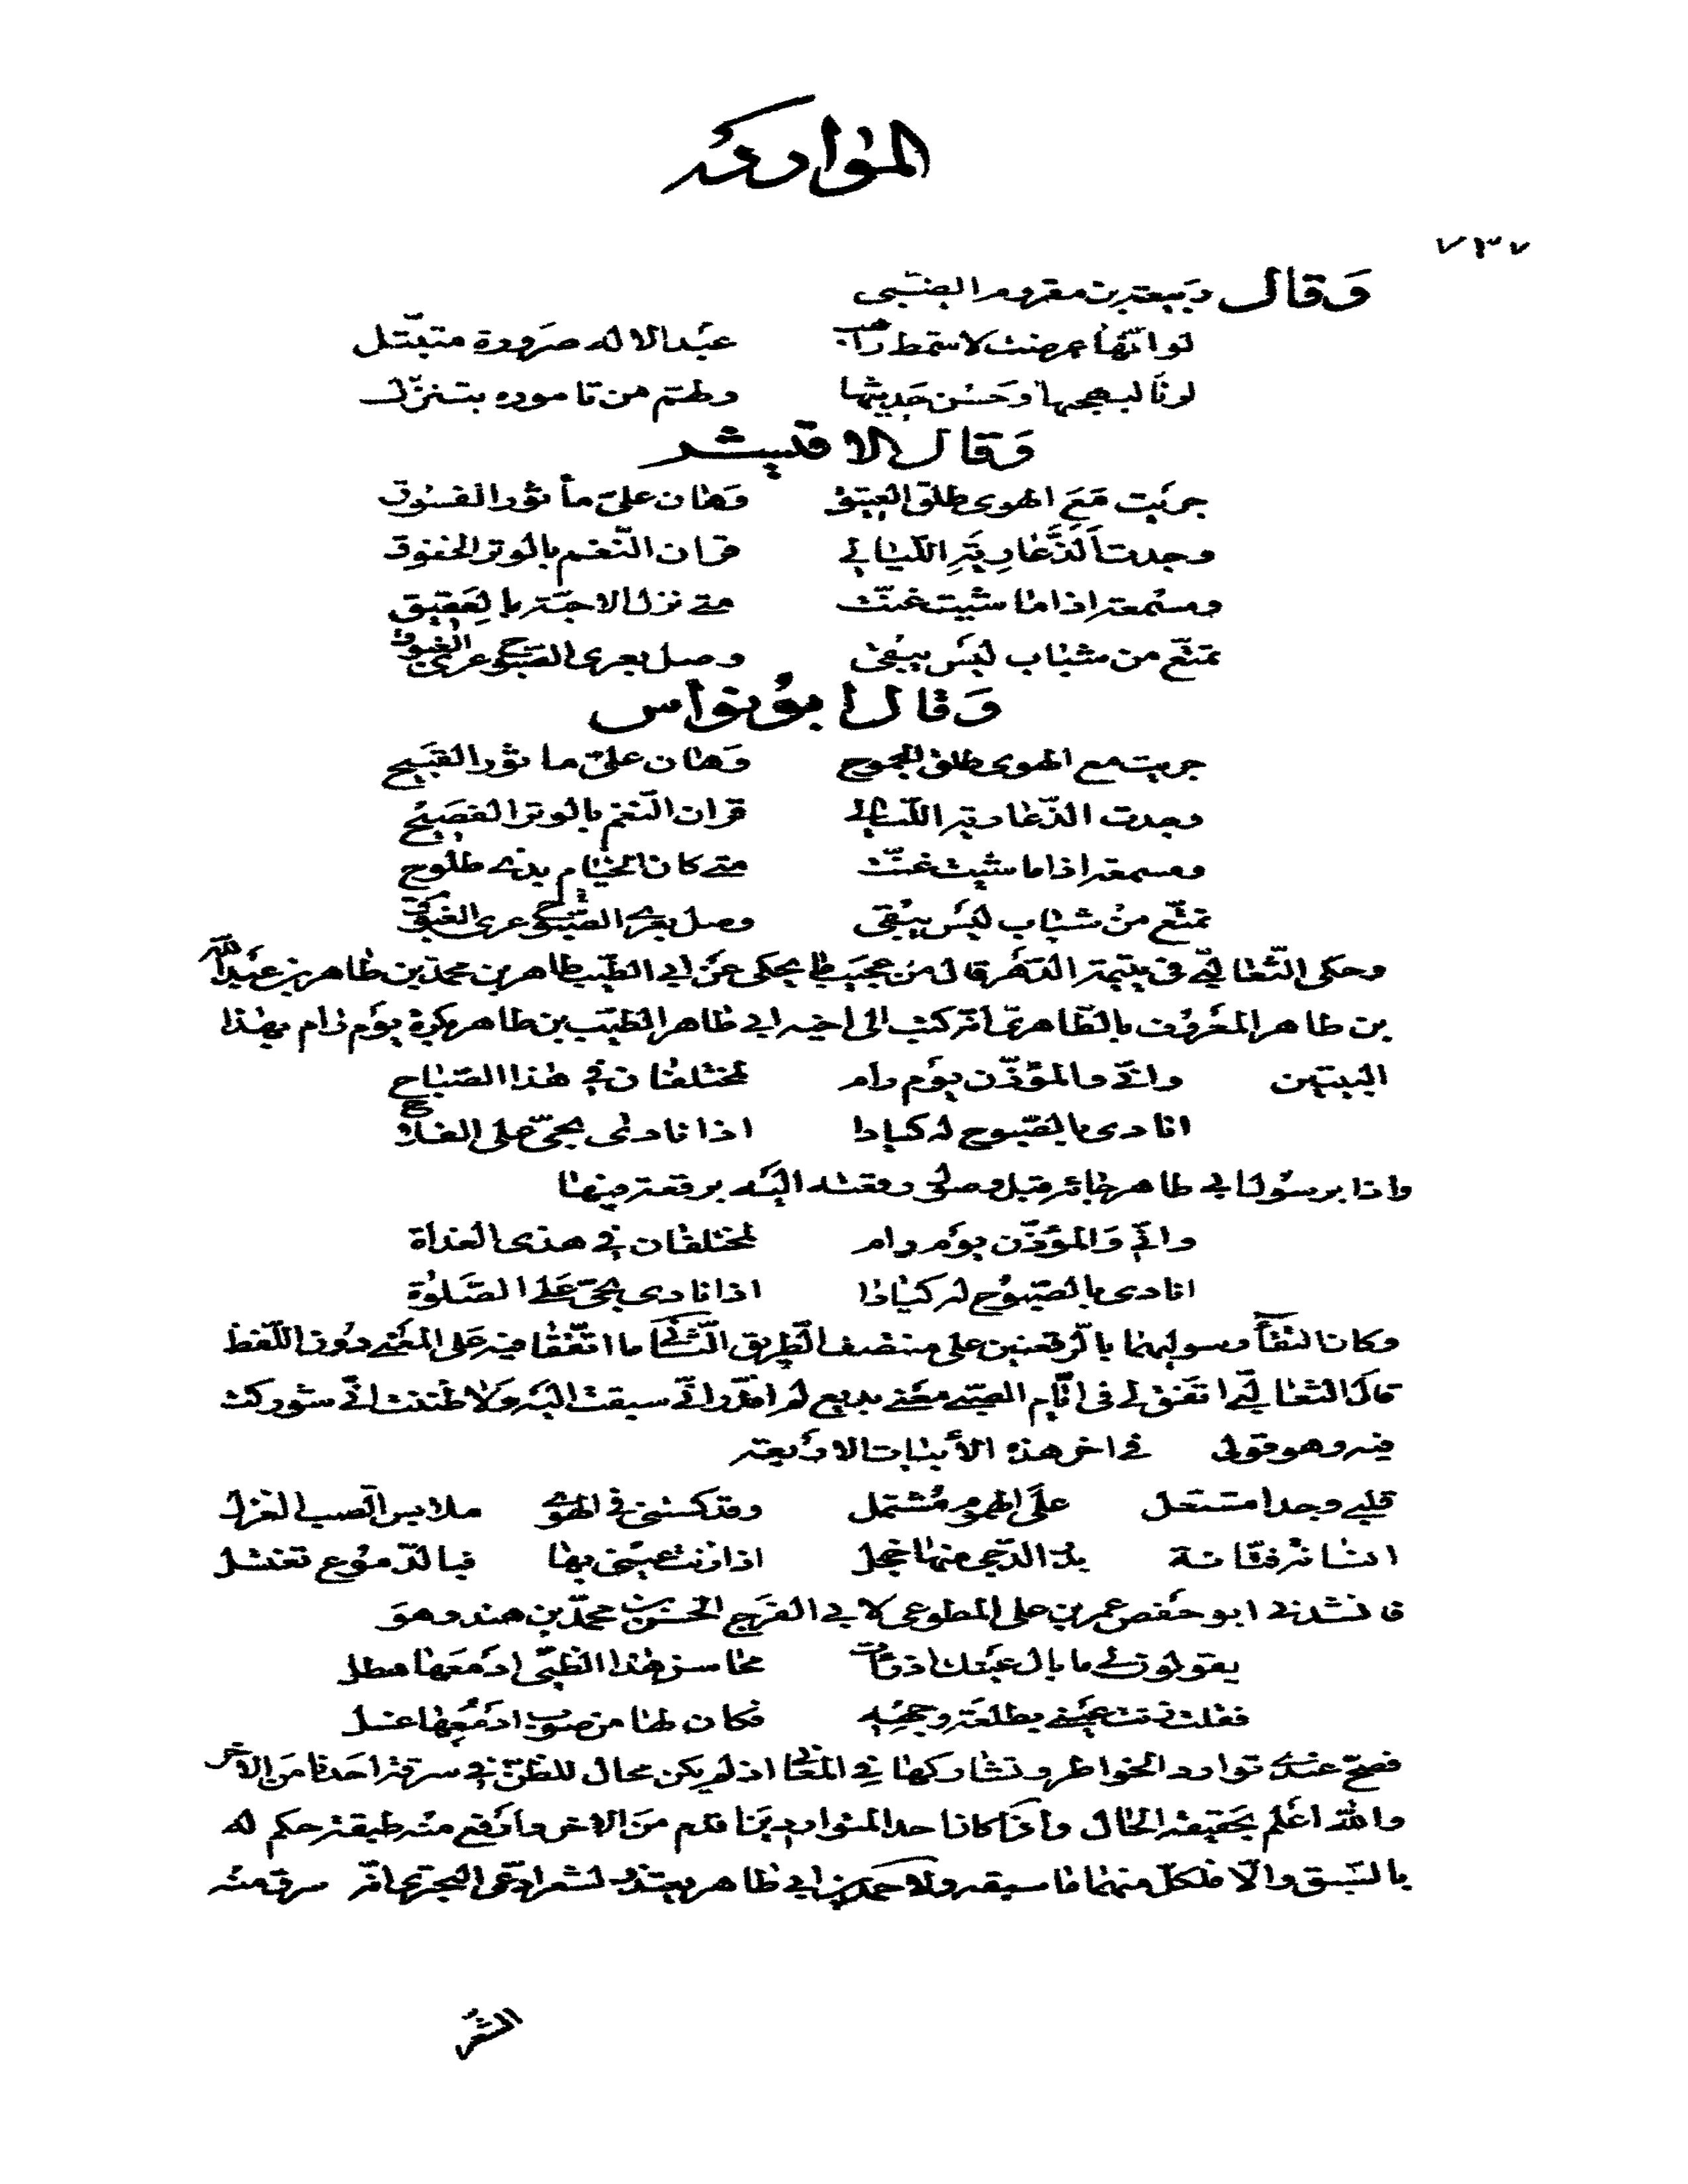 المواردة
٧٣٧
وَقال ربيعة بن مقروم الضبّي
لو انّها عرضت لاشمط راهب عبد الاله صرورة متبتّل
لرنا لبهجتها وحسن حديثها ولهمّ من تاموره بتنزّل
وَقال الاقيشر
جريت مَعَ الهوى طلق العتيق وَهان عليّ مأثور الفسوق
وجدت اَلَذّ عارية الليالي قران النّغم بالوتر الخفوق
ومسمعة اذا ما شيت غنّت متى نزل الاحبّة بالعقيق
تمتّع من شباب ليس يبقى وصل بعرى الصبوح عرى الغبوق
وَقال ابو نواس
جريت مع الهوى طلق الجموح وَهان عليّ ماثور القبيح
وجدت الذّ عارية الليالي قران النّغم بالوتر الفصيح
ومسمعة اذا ما شيت غنّت متى كان الخيام بذي طلوح
تمتّع من شباب ليس يبقى وصل بعرى الصّبوح عرى الغبوق
وحكى الثّعالبيّ في يتيمة الدّهر قال من عجيب ما يحكى عن ابي الطّيب طاهر بن محمد بن طاهر بن عبد الله
بن طاهر المعروف بالطّاهريّ انّه كتب الى اخيه ابي طاهر الطّيّب بن طاهر بكرة يوم رام بهذا
البيتين وانّي والمؤذّن يوم رام لمختلفان في هذا الصّباح
انادي بالصّبوح له كيادا اذا نادى بحيّ على الفلاح
واذا برسول ابي طاهر جائه قبل وصول رقعته اليه برقعة فيها
وانّي وَالمؤذّن يوم رام لمختلفان في هذى الغداة
انادي بالصّبوح له كيادا اذا نادى بحيّ عَلى الصّلوة
وكان التقاء رسوليهما بالرّقعتين على منتصف الطّريق الثّاني ما اتّفقا فيه على المعنى دون اللّفظ
قال الثعالبيّ اتفق لي في ايّام الصبى معنى بديع لم اقدّر انّي سبقت اليه ولا ظننت انّي شوركت
فيه وهو قولى في اخر هذه الأبيات الاربعة
قلبي وجدا مشتعل على الهموم مُشتمل وقد كستني في الهوى ملابس الصّب الغزل
انسانة فتّانة بدر الدّجى منها خجل اذا زنت عيني بها فبالدّموع تغتسل
فانشدني ابو حفص عمر بن على المطوعي لابي الفرج الحسين بن محمّد بن هندو هوَ
يقولون لي ما بال عينك اذ رات محاسن هذا الظّبي ادمعها هطل
فقلت زنت عيني بطلعة وجهه فكان لها من صوب ادمعها غسل
فصحّ عندي توارد الخواطر وتشاركها في المعاني اذ لم يكن مجال للظّنّ في سرقة احدنا من الآخر
والله اعلم بحقيقة الحال واذا كان احد المتواردين اقدم من الاخر وارفع منه طبقة حكم له
بالسّبق والّا فلكلّ منهما ما سبقه ولاحمد بن ابي طاهر يعتذر لشعر ادعى البحتري انّه سرقه منه
الشعر